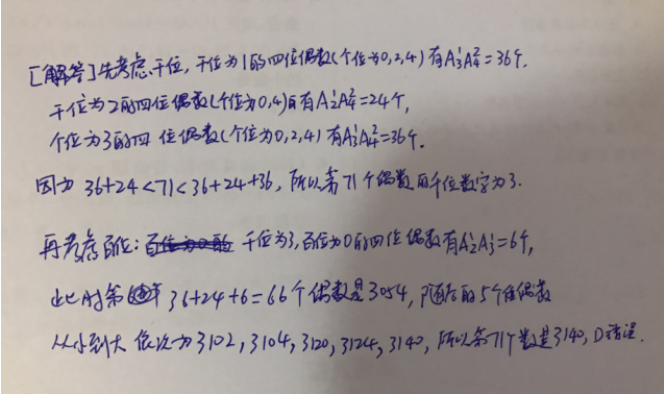 [解答]先考虑千位,千位为1的四位偶数(个位为0,2,4)有A₃¹A₄²=36个,
千位为2的四位偶数(个位为0,4)有A₂¹A₄²=24个,
个位为3的四位偶数(个位为0,2,4)有A₃¹A₄²=36个.
因为 36+24<71<36+24+36,所以第71个偶数的千位数字为3.
再考虑百位: 千位为3,百位为0的四位偶数有A₂¹A₃¹=6个,
此时第36+24+6=66个偶数是3054,随后的5个偶数
从小到大依次为3102,3104,3120,3124,3140,所以第71个数是3140,D错误.